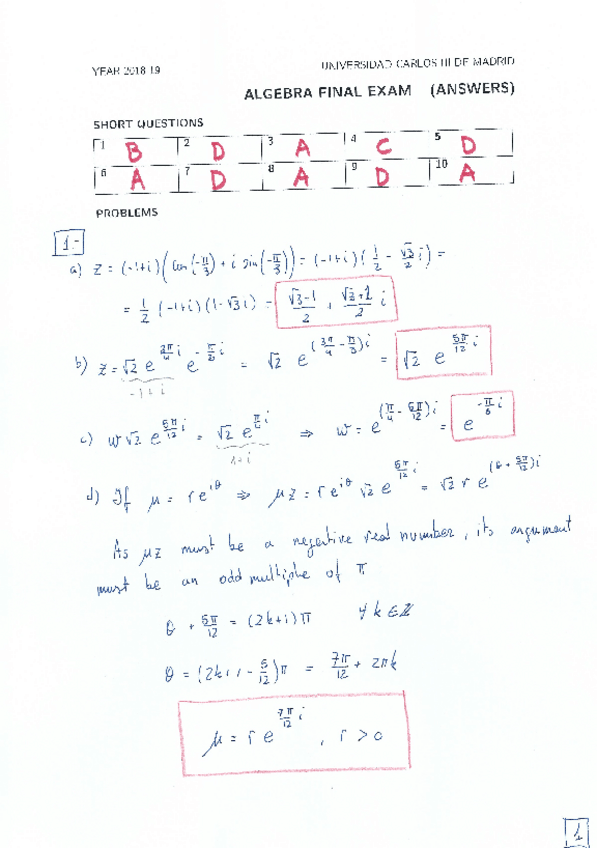 YEAR 2018-19
UNIVERSIDAD CARLOS III DE MADRID
ALGEBRA FINAL EXAM (ANSWERS)
SHORT QUESTIONS
1 B 2 D 3 A 4 C 5 D
6 A 7 D 8 A 9 D 10 A
PROBLEMS
1.-
a) z = (-1+i)(cos(-π/3) + i sin(-π/3)) = (-1+i)(1/2 - √3/2 i) =
= 1/2 (-1+i)(1-√3i) = (√3-1)/2 + (√3+1)/2 i
b) z = √2 e^(3π/4 i) e^(-π/3 i) = √2 e^((3π/4 - π/3)i) = √2 e^(5π/12 i)
-1+i
c) w√2 e^(5π/12 i) = √2 e^(π/4 i) ⇒ w = e^((π/4 - 5π/12)i) = e^(-π/6 i)
1+i
d) If μ = r e^(iθ) ⇒ μz = r e^(iθ) √2 e^(5π/12 i) = √2 r e^((θ + 5π/12)i)
As μz must be a negative real number, its argument
must be an odd multiple of π
θ + 5π/12 = (2k+1)π ∀ k ∈ ℤ
θ = (2k+1 - 5/12)π = 7π/12 + 2πk
μ = r e^(7π/12 i) , r > 0
1